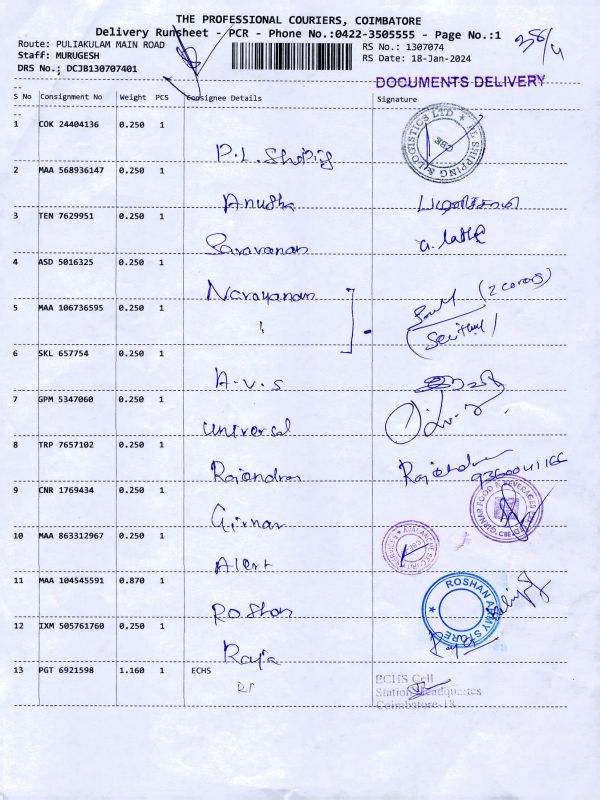 THE PROFESSIONAL COURIERS, COIMBATORE
Delivery Runsheet - PCR - Phone No.:0422-3505555 - Page No.:1
Route: PULIAKULAM MAIN ROAD
Staff: MURUGESH
DRS No.: DCJB130707401
RS No.: 1307074
RS Date: 18-Jan-2024
DOCUMENTS DELIVERY
S No Consignment No Weight PCS Consignee Details Signature
1 COK 24404136 0.250 1
2 MAA 568936147 0.250 1
Anusha
3 TEN 7629951 0.250 1
Saravanan
4 ASD 5016325 0.250 1
Narayanan (2 covers)
5 MAA 106736595 0.250 1
6 SKL 657754 0.250 1
A.V.S
7 GPM 5347060 0.250 1
Universal
8 TRP 7657102 0.250 1
Rajendran Rajendran
9360041166
9 CNR 1769434 0.250 1
Girnar
10 MAA 863312967 0.250 1
Alert
11 MAA 104545591 0.870 1
Roshan ROSHAN ARMY STORE
12 IXM 505761760 0.250 1
Raja
13 PGT 6921598 1.160 1 ECHS
ECHS Cell
Station Headquartes
Coimbatore-18